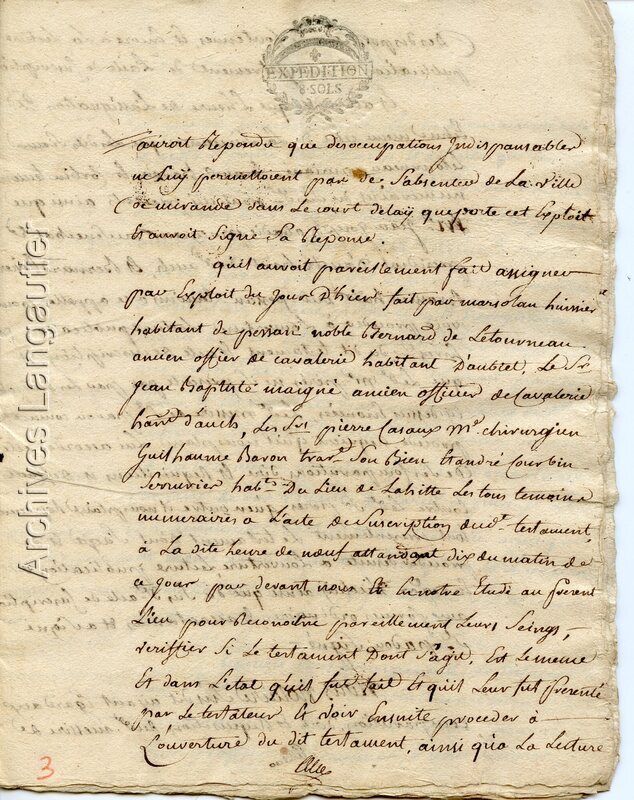 EXPEDITION
8·SOLS
auroit Repondu que des occupations Indispansables
ne Luy permettoient pas de Sabsenter de La ville
de mirande dans Le court delay que porte cet Exploit
Et auroit Signé Sa Reponse.
quil auroit pareillement fait assigner
par Exploit du Jour D'hier fait par marsolan huissier
habitant de pessan noble Bernard de Letourneau
ancien offier de cavalerie habitant D'aubiet, Le Sr
Jean Baptiste maigné ancien officier de Cavalerie
hant d'auch, Les Srs pierre Casaux Me chirurgien
Guilhaume Baron travt Son Bien Et andré Courbin
Serrurier habts Du Lieu de Lahitte Les tous temoins
numeraires a L'acte de Suscription dudt testament,
à La dite heure de neuf attendant dix du matin de
ce Jour par devant nous Et En notre Etude au present
Lieu pour Reconoitre pareillement Leurs Seings,
verifier Si Le testament Dont S'agit, Est Le meme
Et dans L'etat quil fut fait Et quil Leur fut presenté
par Le testateur Et voir Ensuite proceder à
L'ouverture du dit testament, ainsi qu'a La Lecture
3
Archives Langautier